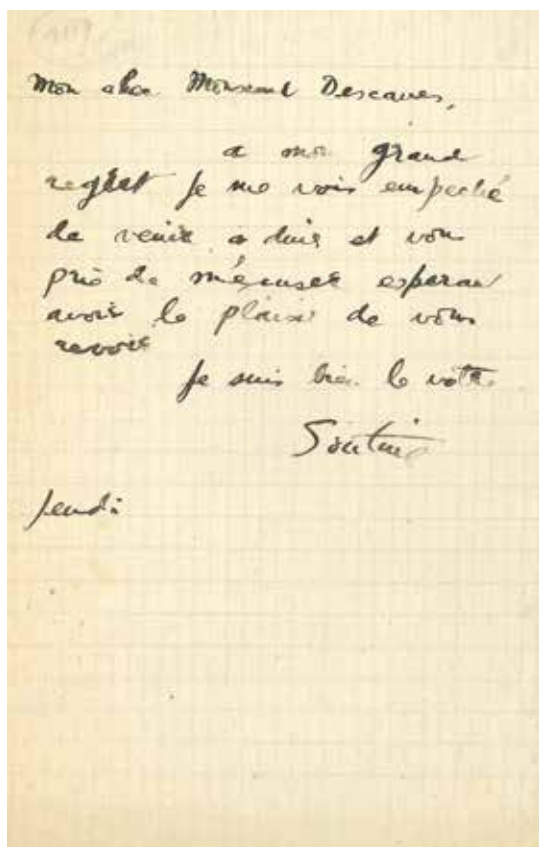 Mon cher Monsieur Descaves,
a mon grand
regret je me vois empeché
de venir a diner et vous
prie de m'éxcuser esperant
avoir le plaisir de vous
revoir
Je suis bien le votre
Soutine
Jeudi